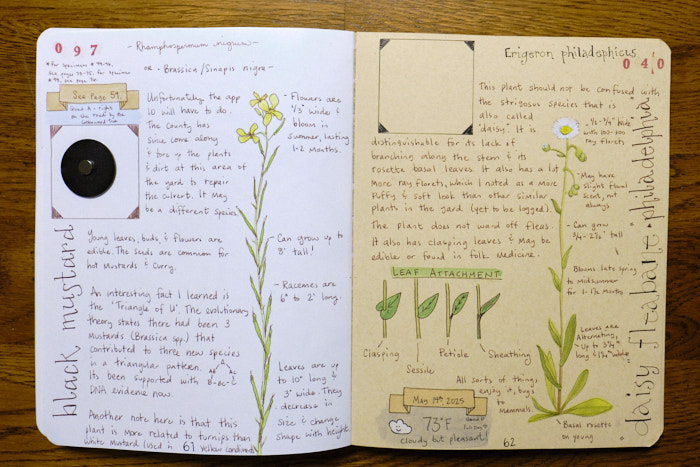 0 9 7
- Rhamphospermum nigrum -
* for specimens
see pages
or - Brassica/Sinapis nigra -
See Page 59
Unfortunately, the app
ID will have to do.
The county has
since come along
& tore up the plants
& dirt at this area of
the yard to repair
the culvert. It may
be a different species.
- Flowers are
1/3" wide &
bloom in
summer, lasting
1-2 months.
black mustard
Young leaves, buds, & flowers are
edible. The seeds are common for
hot mustards & curry.
- Can grow up to
8' tall!
An interesting fact I learned is
the "Triangle of U". The evolutionary
theory states there had been 3
Mustards (Brassica spp.) that
contributed to three new species
in a triangular pattern.
Its been supported with
DNA evidence now.
- Racemes are
6" to 2' long.
Leaves are up
to 10" long &
3" wide. They
decrease in
size & change
shape with height.
Another note here is that this
plant is more related to turnips than
white mustard (used in yellow condiments)
61
Erigeron philadelphicus
0 4 0
This plant should not be confused with
the strigosus species that is
also called
"daisy". It is
distinguishable for its lack of
branching along the stem & its
rosette basal leaves. It also has a lot
more ray florets, which I noted as a more
puffy & soft look than other similar
plants in the yard (yet to be logged).
The plant does not ward off fleas.
It also has clasping leaves & may be
edible or found in folk medicine.
- 1/2 - 3/4" wide
with 100-300
ray florets
- May have
slight floral
scent, not
always
- Can grow
tall
Blooms late spring
to Midsummer
for 1-1 1/2 months
Leaves are
Alternating,
up to
long &
wide
daisy fleabane • philadelphia
LEAF ATTACHMENT
Clasping
Sessile
Petiole
Sheathing
All sorts of things
enjoy it, bugs
to
Mammals
May 14th 2025
73°F
cloudy but pleasant!
- Basal rosette
on young
62